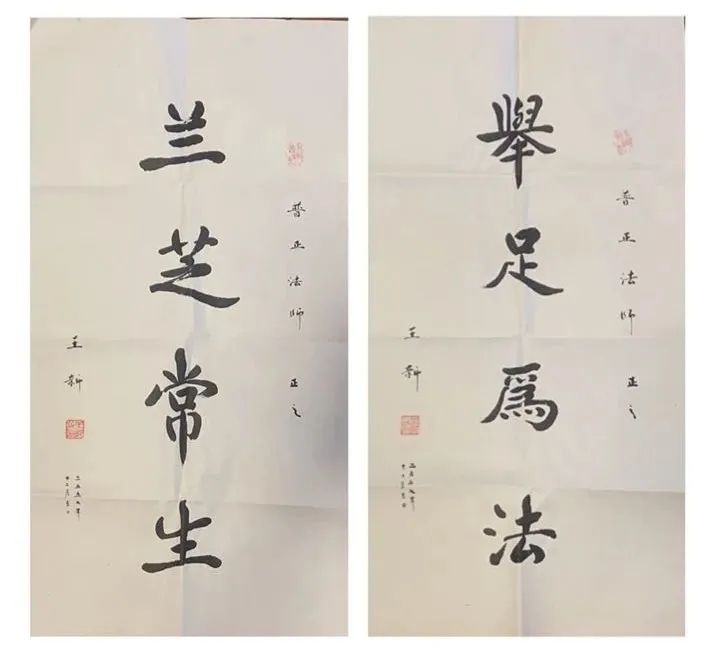 兰芝常生
普正法师 正之
王新
舉足爲法
普正法师 正之
王新